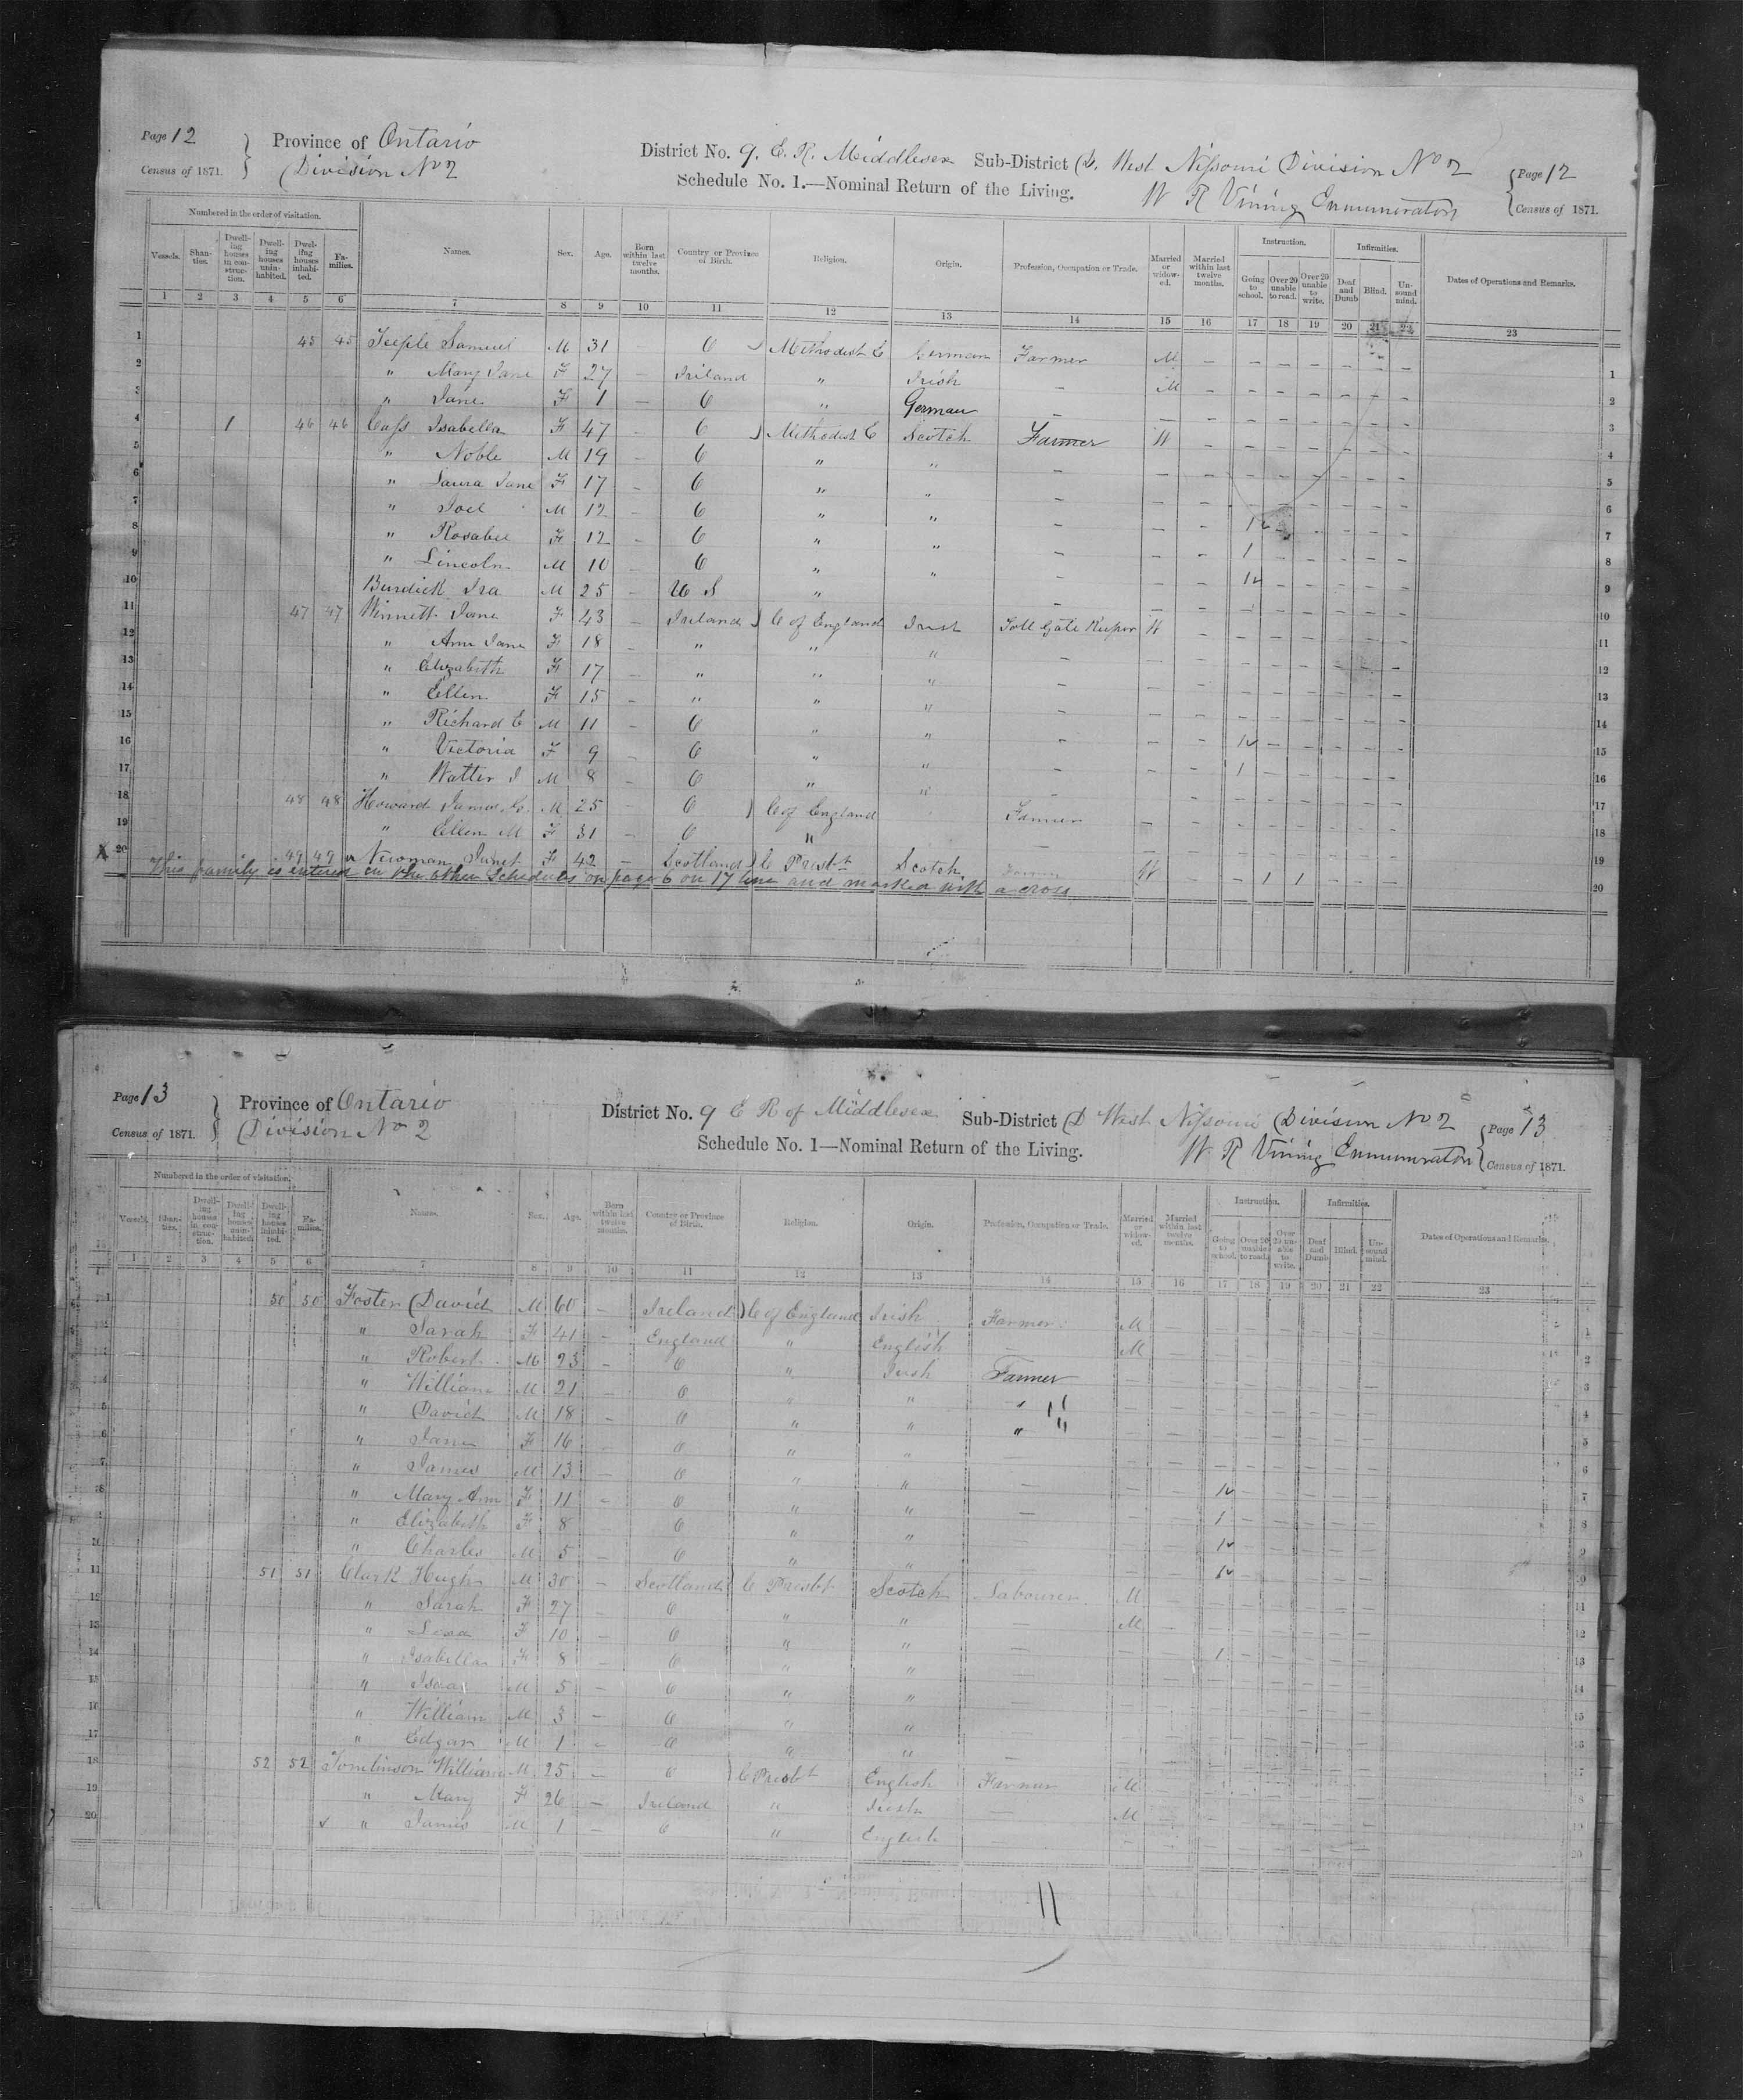 Page 12 Province of Ontario District No. 9. E. R. Middlesex Sub-District D. West Nissouri Division No 2 Page 12
Census of 1871. Division No 2 Schedule No. 1.—Nominal Return of the Living. W R Vining Enumerator Census of 1871.
Numbered in the order of visitation. Instruction. Infirmities.
Vessels. Shanties. Dwelling houses in construction. Dwelling houses uninhabited. Dwelling houses inhabited. Families. Names. Sex. Age. Born within last twelve months. Country or Province of Birth. Religion. Origin. Profession, Occupation or Trade. Married or widowed. Married within last twelve months. Going to school. Over 20 unable to read. Over 20 unable to write. Deaf and Dumb Blind. Unsound mind. Dates of Operations and Remarks.
1 2 3 4 5 6 7 8 9 10 11 12 13 14 15 16 17 18 19 20 21 22 23
1 45 45 Teeple Samuel M 31 — O Methodist E German Farmer M — — — — — — — 1
2 " Mary Jane F 27 — Ireland " Irish — M — — — — — — — 2
3 " Jane F 1 — O " German — — — — — — — — — 3
4 1 46 46 Cass Isabella F 47 — O Methodist E Scotch Farmer W — — — — — — — 4
5 " Noble M 19 — O " " — — — — — — — — — 5
6 " Laura Jane F 17 — O " " — — — — — — — — — 6
7 " Joel M 12 — O " " — — — 1 — — — — — 7
8 " Rosabel F 12 — O " " — — — 1 — — — — — 8
9 " Lincoln M 10 — O " " — — — 1 — — — — — 9
10 Burdick Ira M 25 — U S " — — — — — — — — — 10
11 47 47 Winnett Jane F 43 — Ireland C of England Irish Toll Gate Keeper W — — — — — — — 11
12 " Ann Jane F 18 — " " " — — — — — — — — — 12
13 " Elizabeth F 17 — " " " — — — — — — — — — 13
14 " Ellen F 15 — " " " — — — — — — — — — 14
15 " Richard E M 11 — O " " — — — 1 — — — — — 15
16 " Victoria F 9 — O " " — — — 1 — — — — — 16
17 " Walter J M 8 — O " " — — — — — — — — — 17
18 48 48 Howard James M 25 — O C of England Farmer — — — — — — — — 18
19 " Ellen M F 31 — O " — — — — — — — — — 19
X 20 49 49 Newman Janet F 42 — Scotland C Presbt Scotch Farmer W — — 1 1 — — — 20
This family is entered in the other Schedules on page 6 on 17 line and marked with a cross
Page 13 Province of Ontario District No. 9 E R of Middlesex Sub-District D West Nissouri Division No 2 Page 13
Census of 1871. Division No 2 Schedule No. 1—Nominal Return of the Living. W R Vining Enumerator Census of 1871.
Numbered in the order of visitation. Instruction. Infirmities.
Vessels. Shanties. Dwelling houses in construction. Dwelling houses uninhabited. Dwelling houses inhabited. Families. Names. Sex. Age. Born within last twelve months. Country or Province of Birth. Religion. Origin. Profession, Occupation or Trade. Married or widowed. Married within last twelve months. Going to school. Over 20 unable to read. Over 20 unable to write. Deaf and Dumb Blind. Unsound mind. Dates of Operations and Remarks.
1 2 3 4 5 6 7 8 9 10 11 12 13 14 15 16 17 18 19 20 21 22 23
1 50 50 Foster David M 60 — Ireland C of England Irish Farmer M — — — — — — — 1
" Sarah F 41 — England " English — M — — — — — — — 2
" Robert M 23 — O " Irish Farmer — — — — — — — — 3
4 " William M 21 — O " " " — — — — — — — — 4
5 " David M 18 — O " " " — — — — — — — — 5
6 " Jane F 16 — O " " — — — — — — — — — 6
7 " James M 13 — O " " — — — 1 — — — — — 7
8 " Mary Ann F 11 — O " " — — — 1 — — — — — 8
" Elizabeth F 8 — O " " — — — 1 — — — — — 9
" Charles M 5 — O " " — — — 1 — — — — —
11 51 51 Clark Hugh M 30 — Scotland C Presbt Scotch Labourer M — — — — — — — 11
12 " Sarah F 27 — O " " — M — — — — — — — 12
" F 10 — O " " — — — 1 — — — — — 13
14 " Isabella F 8 — O " " — — — — — — — — — 14
15 " M 5 — O " " — — — — — — — — — 15
16 " William M 3 — O " " — — — — — — — — — 16
17 " Edgar M 1 — O " " — — — — — — — — — 17
18 52 52 Tomlinson William M 25 — O C Presbt English Farmer M — — — — — — — 18
19 " Mary F 26 — Ireland " Irish — M — — — — — — — 19
20 " James M 1 — O " English — — — — — — — — — 20
11